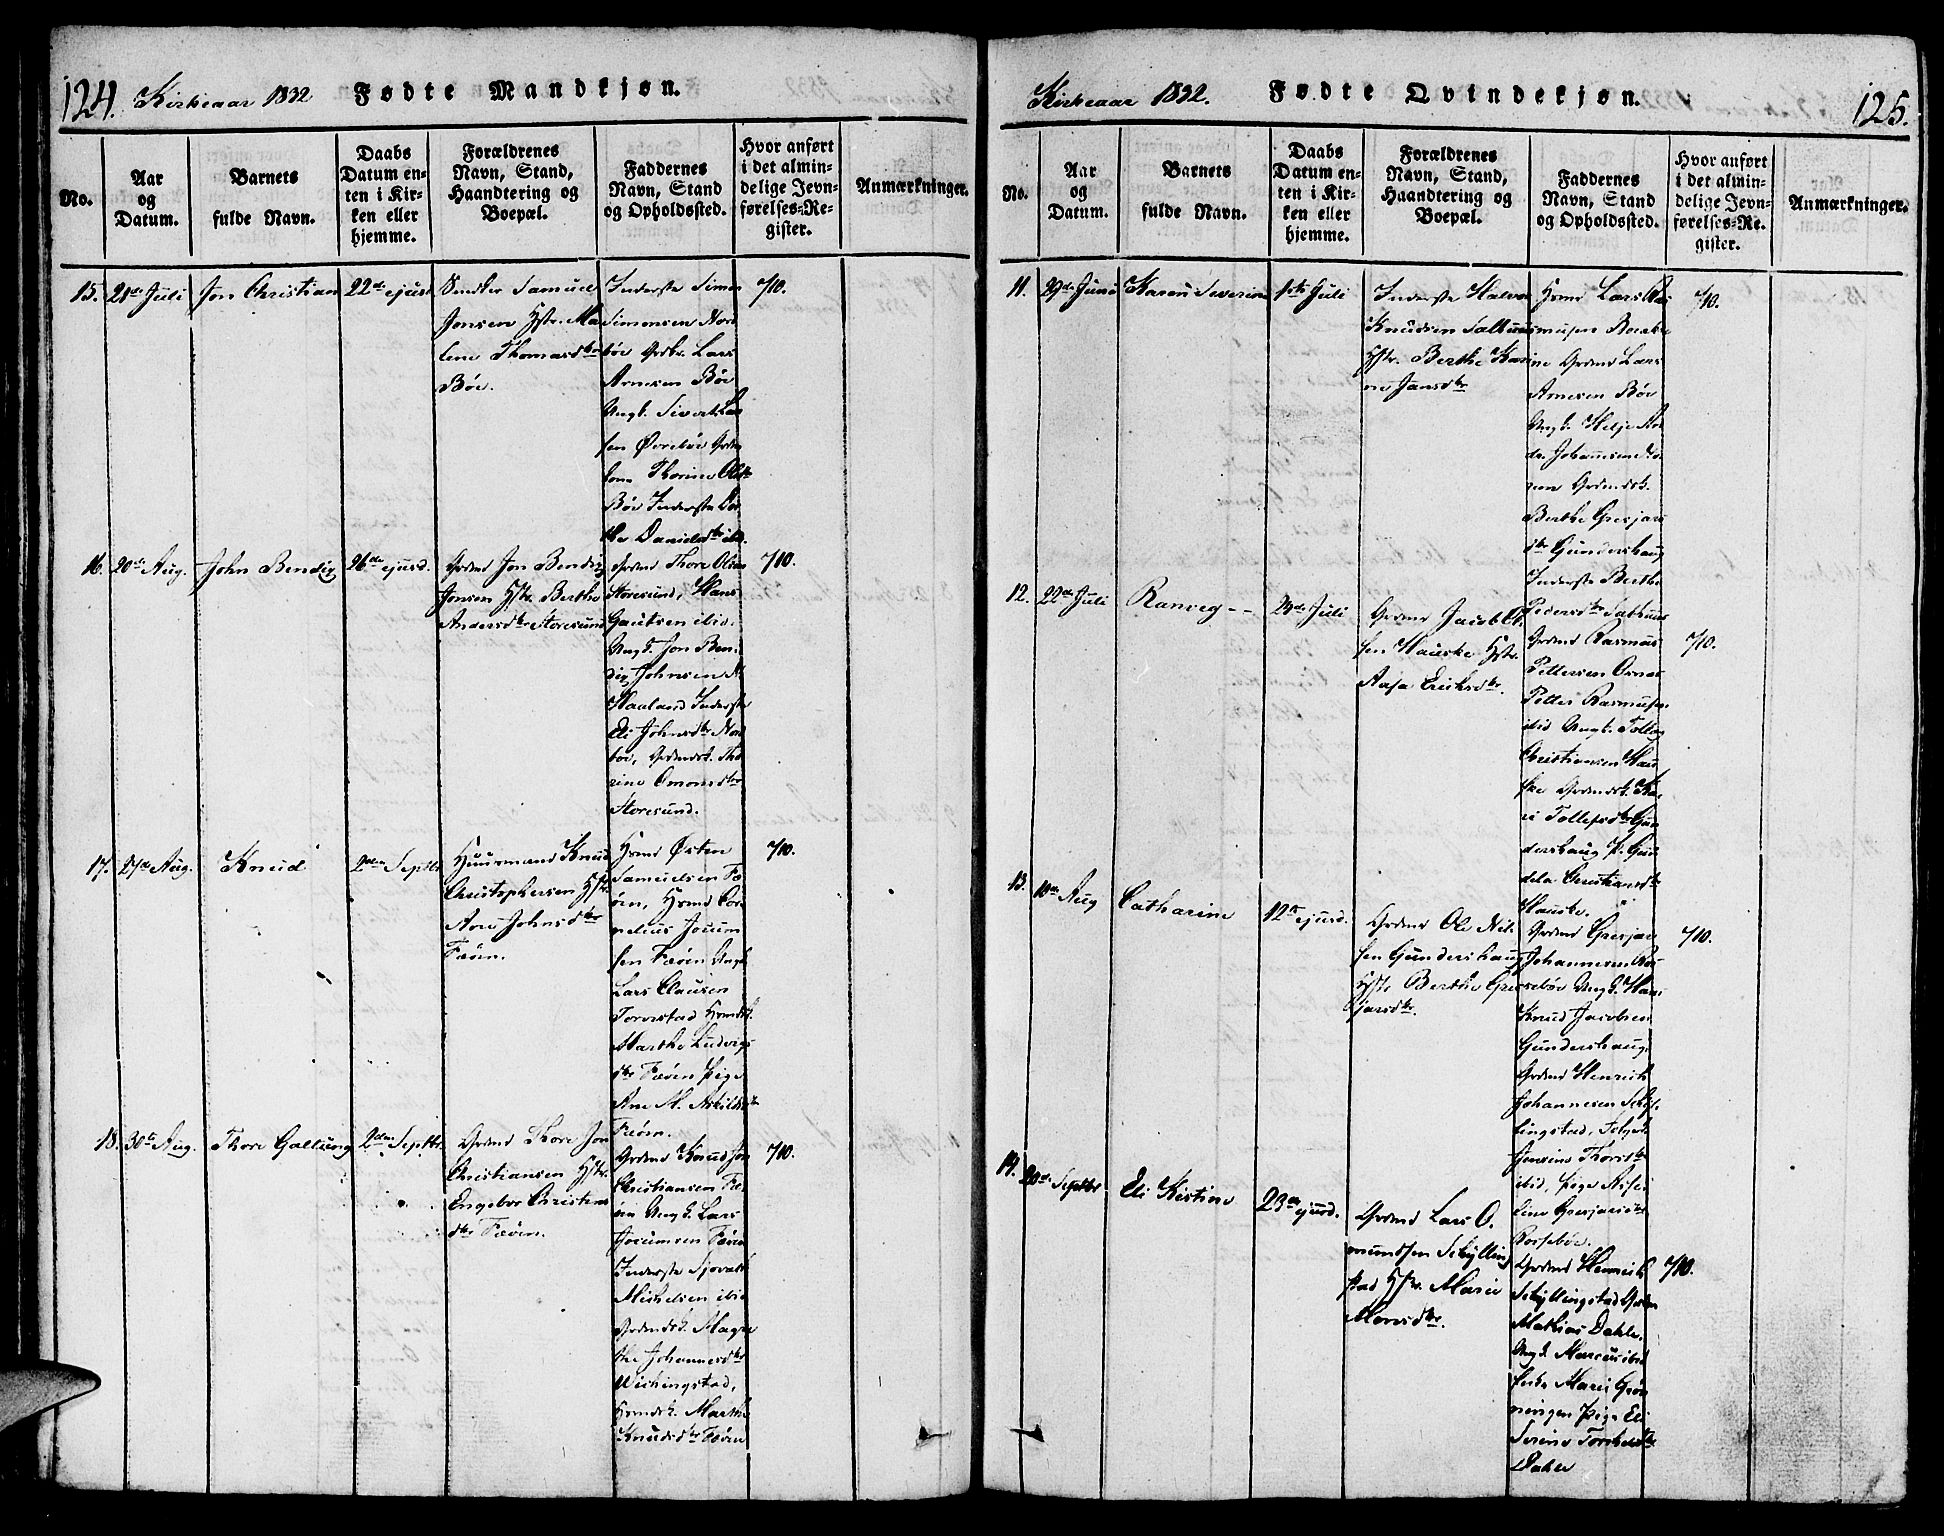 124. Kirkeaar 1832 Fødte Mandkjøn.
No.
Aar
og
Datum.
Barnets
fulde Navn.
Daabs
Datum en-
ten i Kir-
ken eller
hjemme.
Forældrenes
Navn, Stand,
Haandtering og
Boepæl.
Faddernes
Navn, Stand
og Opholdssted.
Hvor anført
i det almin-
delige Jevn-
førelses-Re-
gister.
Anmærkninger.
15. 21de Juli
Jon Christian
22de ejusd
Samuel
Jonsen Hstr. Ma
lene Thomasdtr
Bøe.
Inderste Simon
Simonsen Nord
bøe Grdbr. Lars
Arnesen Bøe
Ungk. Sivert Lar
sen Øvrebøe
Thorine Olsdtr
Bøe Inderste Dor
the Danielsdtr ibid.
710.
16. 20de Aug.
John Bendix
26de ejusd.
Grdmd Jon Bendix
Jonsen Hstr. Berthe
Andersdtr Storesund
Grdmd Thore Olsen
Storesund, Hans
Gautsen ibid.
Ungk. Jon Ben
dix Johnsen N.
Haaland Inderste
Eli Johnsdtr Nord
bøe, Grdmdsk. Tho
rine Omundsdtr
Storesund.
710.
17. 27de Aug.
Knud
2den Septbr
Huusmand Knud
Christophersen Hstr.
Ane Johnsdtr
Fæøen.
Hsmd Østen
Samuelsen Fæ
øen, Hsmd Cor
nelius Joum
sen Fæøen Ungk.
Lars Clausen
Torvestad Hsmdsk.
Marthe Ludvigs
dtr Fæøen Pige
Ane M. Askildsdtr
Fæøen.
710.
18. 30te Aug.
Thore Galtung
2den Septbr.
Grdmd Thore Jon
Christiansen Hstr.
Engebor Christens
dtr Fæøen.
Grdmd Knud Jon
Christiansen Fæ
øen Ungk. Lars
Jocumsen Fæøen
Inderste Sjovat
Michelsen ibid
Grdmdsk. Magre
the Johannesdtr
Wichingstad,
Hsmdsk. Marthe
Knudsdtr Fæøen
710.
Kirkeaar 1832. Fødte Qvindekjøn. 125.
No.
Aar
og
Datum.
Barnets
fulde Navn.
Daabs
Datum en-
ten i Kir-
ken eller
hjemme.
Forældrenes
Navn, Stand,
Haandtering og
Boepæl.
Faddernes
Navn, Stand
og Opholdssted.
Hvor anført
i det almin-
delige Jevn-
førelses-Re-
gister.
Anmærkninger.
11. 29de Juni
Karen Severine
1ste Juli
Inderste Halvor
Knudsen Salhuus
Hstr. Berthe Kari
ne Jansdtr
Hsmd Lars Ras
musen
Grdmd Lars
Arnesen Bøe
Ungk. Helje
Johannesen
Grdmdsk.
Berthe Gresjars
dtr Gundershaug
Inderste Berthe
Pedersdtr Salhuus
710.
12. 22de Juli
Ranveg - -
29de Juli
Grdmd Jacob
sen Hauske Hstr.
Aasa Eriksdtr.
Grdmd Rasmus
Pettersen
Petter Rasmusen
ibid Ungk. Tollag
Christiansen Hau
ske Grdmdsk. Ka
ri Tollefsdtr Gun
dershaug P. Gun
dela Christiansdtr
Hauske.
710.
13. 10de Aug
Catharine
12te ejusd.
Grdmd Ole Nil-
sen Gundershaug
Hstr. Berthe Gres
jarsdtr.
Grdmd Gresjar
Johannesen Ros-
sebøe Ungk. Hans
Knud Jacobsen
Gundershaug.
Grdmd Henrich
Johannesen Schyl-
lingstad,
Thorsdtr
ibid, Pige
line Gresjarsdtr
Rossebøe.
710.
14. 20de Septbr
Eli Kistine
23de ejusd.
Grdmd Lars O.
mundsen Schylling
stad Hstr. Marie
Monsdtr.
Grdmd Henrich
Schyllingstad
Mathias Dahle,
Ungk. Marcus ibid
Enke Marie Grøn
ningen Pige Eli
Serine Torkelsdtr
Dahle
710.